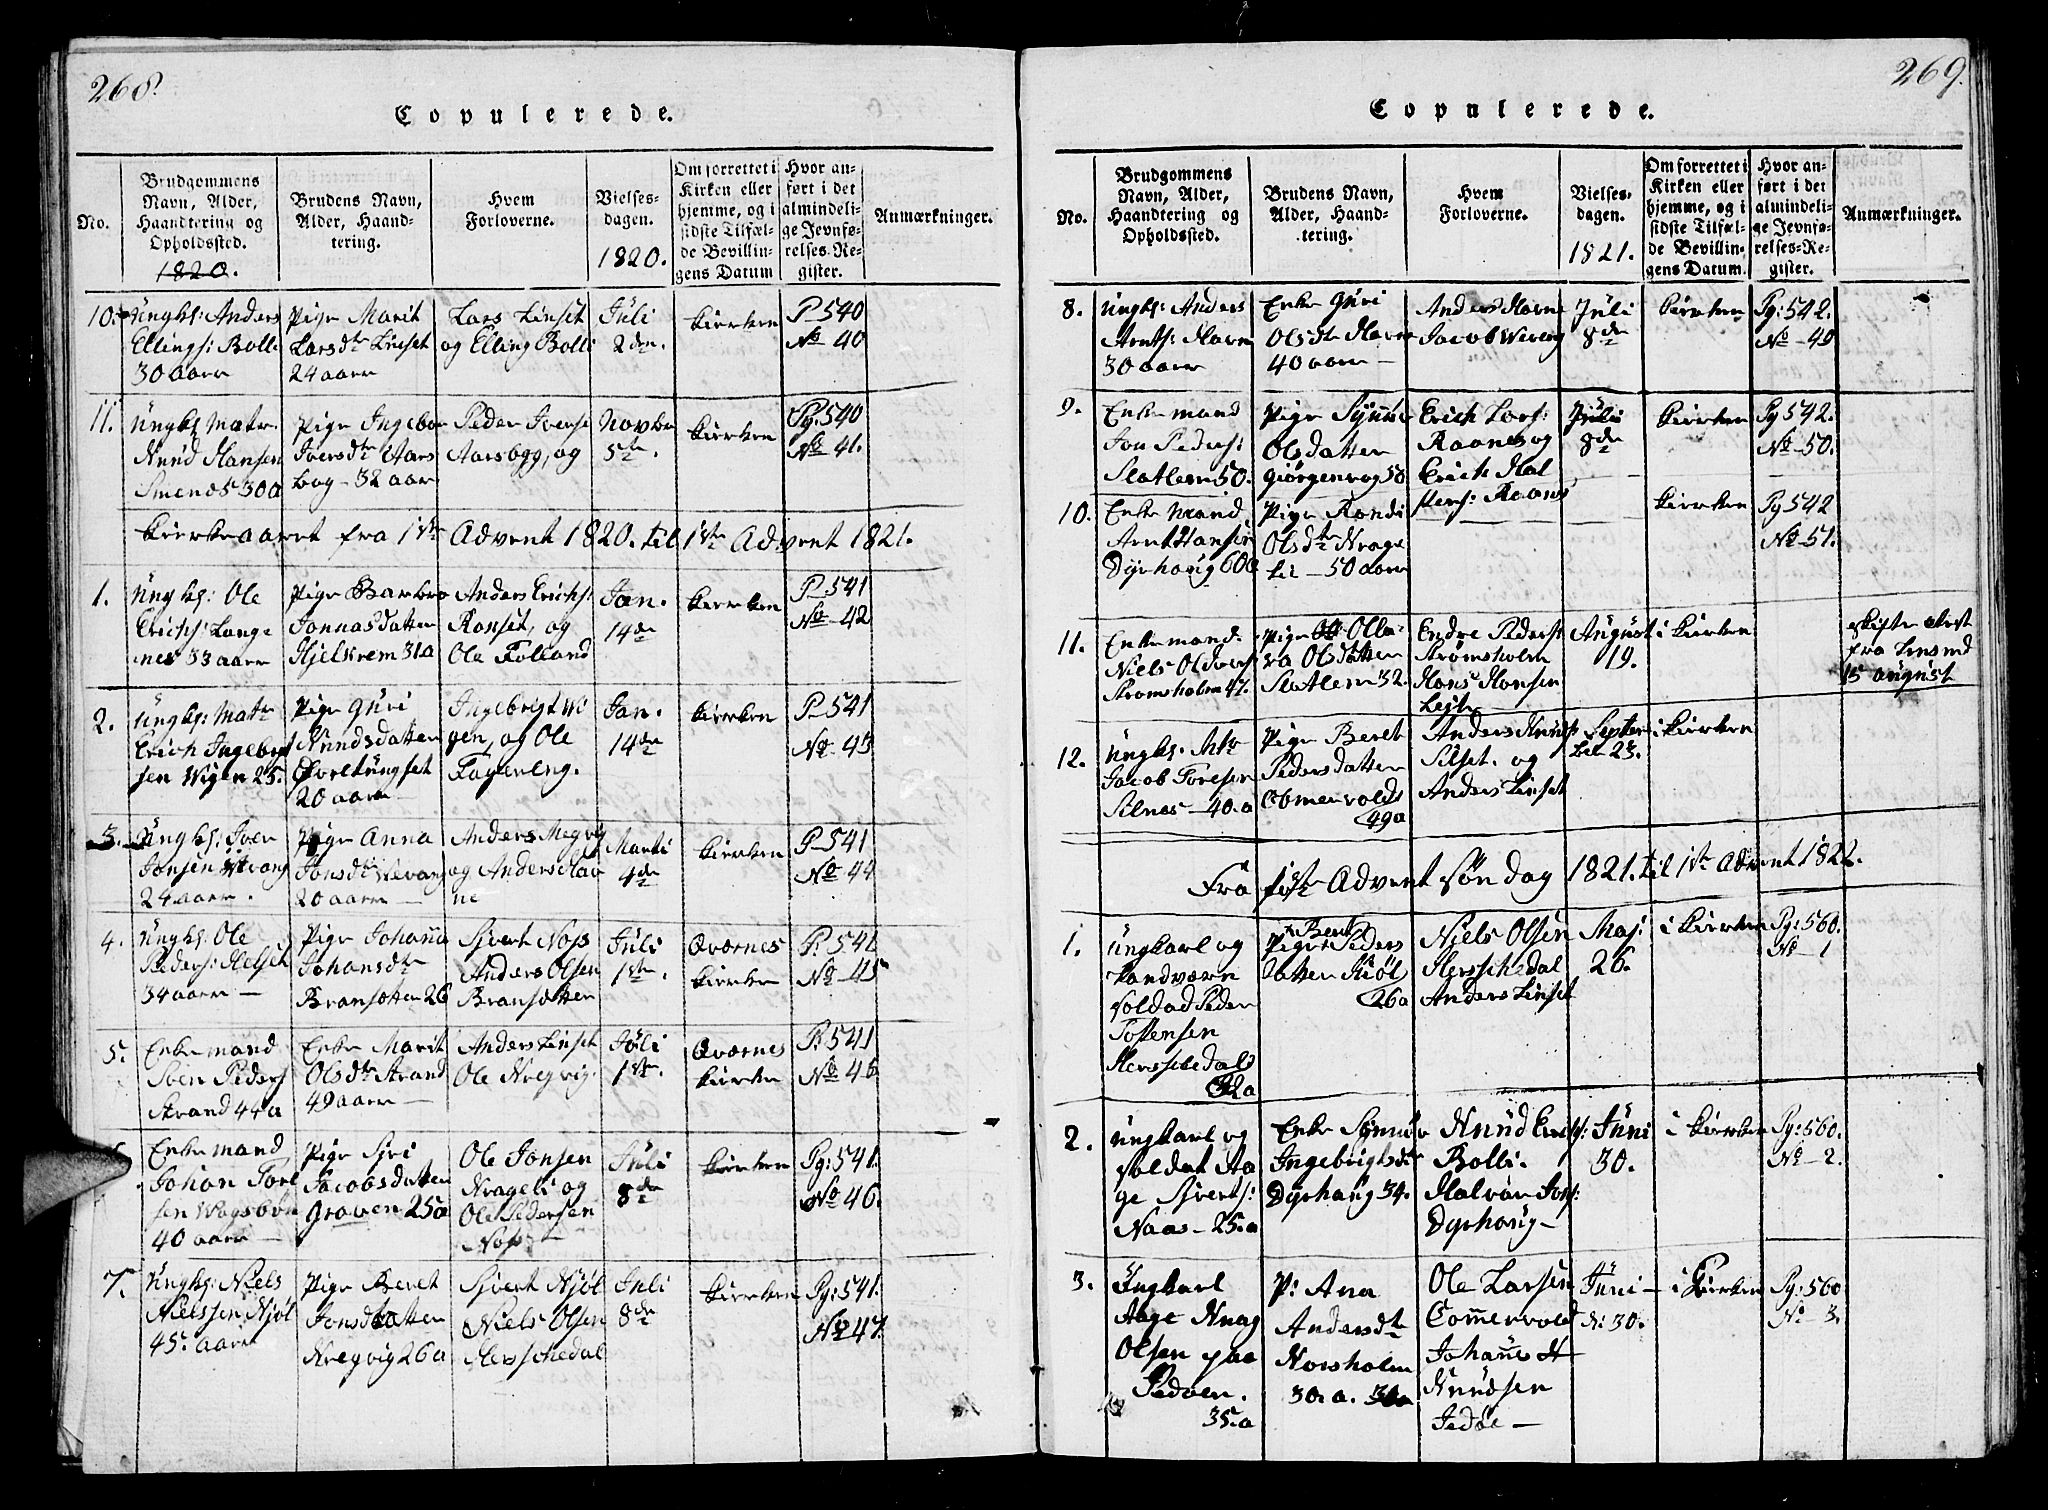 268.
Copulerede.
No.
Brudgommens
Navn, Alder,
Haandtering og
Opholdssted.
1820.
Brudens Navn,
Alder, Haand-
tering.
Hvem
Forloverne.
Vielses-
dagen.
1820.
Om forrettet i
Kirken eller
hjemme, og i
sidste Tilfæl-
de Bevillin-
gens Datum
Hvor an-
ført i det
almindeli-
ge Jevnfø-
relses-Re-
gister.
Anmærkninger.
10.
Ungk: Anders
Ellings: Bolli
30 aarr
Pige Marit
Larsdtr Linset
24 aarr
Lars Linset
og Elling Bolli
Juli
2den.
kierken
P. 540
No 40
11.
Ungk: Matr.
Knud Hansen
30 a
Pige Ingebor
Iversdtr Aars
bog - 32 aar
Peder Iverse
Aarsbogg, og
Novbr
5te.
kierken
Pg: 540
No 41.
Kierkeaaret fra 1ste Advent 1820. til 1ste Advent 1821.
1.
Ungk: Ole
Erichs: Lange
nes 33 aarr
Pige Barbro
Jonnasdatter
Hjelkrem 31 a
Anders Erichs:
Ronset, og
Ole Folland
Jan.
14de
kierken
P. 541
No 42
2.
Ungk: Matr
Erich Ingebrgt
sen Wigen 25.
Pige Guri
Knudsdatter
20 aarr
Ingebrigt Wi
gen, og Ole
Fagereng.
Jan.
14de
kierken
P. 541
No - 43
3.
Ungk: Iver
Jonsen Wevang
24 aarr.
Pige Anna
Jonsdtr Wevang
20 aarr
Anders Megvig
og Anders Hav
ne
Marti
4de
kierken
P. 541
No 44
4.
Ungk: Ole
Peders: Helset
34 aarr
Pige Johanna
Johansdtr
Bransætter 26
Sivert Nøs
Anders Olsen
Bransætter
Juli
1ste.
Qværnes
kierken
P. 541
No - 45
5.
Enkemand
Sven Peders
Strand 44 a
Enke Marit
Olsdtr Strand
49 aarr
Anders Linset
Ole Kregvig.
Juli
1ste.
Qværnes
kierken
P. 541
No 46
Enkemand
Johan Torl
40 aarr
Pige Siri
Jacobsdatter
Graven 25 a
Ole Jonsen
Krageli og
Ole Pedersen
Nøs
Juli
8de
kierken
Pg: 541.
No 46.
7.
Ungk: Niels
Nielssen Kjøl
45. aarr
Pige Beret
Jonsdtatter
Kregvig 26 a
Sivert Kjøl
Niels Olsen
Herschedal
Juli
8de
kierken
Pg: 541.
No 47.
269.
Copulerede.
No.
Brudgommens
Navn, Alder,
Haandtering og
Opholdssted.
Brudens Navn,
Alder, Haand-
tering.
Hvem
Forloverne.
Vielses-
dagen.
1821.
Om forrettet i
Kirken eller
hjemme, og i
sidste Tilfæl-
de Bevillin-
gens Datum.
Hvor an-
ført i det
almindeli-
ge Jevnfø-
relses-Re-
gister.
Anmærkninger.
8.
Ungk: Anders
Arnts: Havn
30 aarr
Enke Guri
Olsdtr Havn
40 aarr
Anders Havne
Jacob Wevang
Juli
8de
kierken
Pg: 542.
No - 49
9.
Enkemand
Jon Peders:
Slatlem 50.
Pige Synnøv
Olsdatter
50
Erich Lars:
Raanes og
Erich Hal
Juli
8de
kierken
Pg 542.
No - 50.
10.
Enke Mand
Arnt Hansen
Dyrhaug 60 a
Pige Randi
Olsdtr Krage
lie - 50 aarr
kierken
Pg 542
No - 51.
11.
Enkemand.
Niels Oldvers
Strømsholm 47.
Pige Olla-
va Olsdatter
Slatlem 32.
Endre Peders
Strømsholm
Hans Hansen
August
19.
i kierken
skifte
fra
15 august
12.
Ungk. Mtr
Jacob Toresen
Silnes - 40. a
Pige Beret
Pedersdatter
49 a
Anders Knuds
Silset. og
Anders Linset
Septem
ber 23.
i kierken
Fra første Advent søndag 1821. til 1ste Advent 1822.
1.
Ungkarl og
Landværn
soldad Peder
Tostensen
Herschedal
32 a
Pige Beret Peders
datter Kiøl
26 a
Niels Olsen
Herschedal
Anders Linset
Maj:
26.
i kierken
Pg: 560.
No - 1
2.
Ungkarl og
soldat Aa
ge Siverts:
Naas - 25. a
Enke Synnøv
Ingebrigtsdtr
Dyrhaug 34.
Knud Erichs:
Bolli.
Halvor Jons:
Dyrhaug -
Juni
30.
i kierken
Pg: 560.
No - 2.
3.
Ungkarl
Aage Knag
Olsen paa
35. a
P: Ana
Andersdtr
Norsholm
30. a.
Ole Larsen
Commervold
Johannes
Knudsen
Jedøe -
Juni
d: 30.
i kierken
Pg: 560
No - 3.